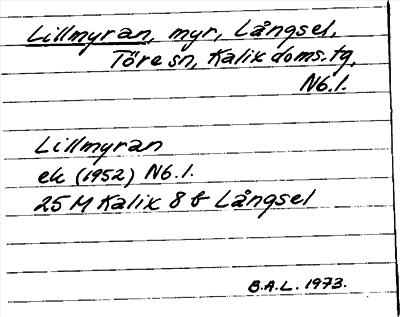 Lillmyran, myr, Långsel,
Töre sn, Kalix doms.tg,
N6.l.
Lillmyran
ek (1952) N6.l.
25 M Kalix 8 b Långsel
B.A.L. 1973.